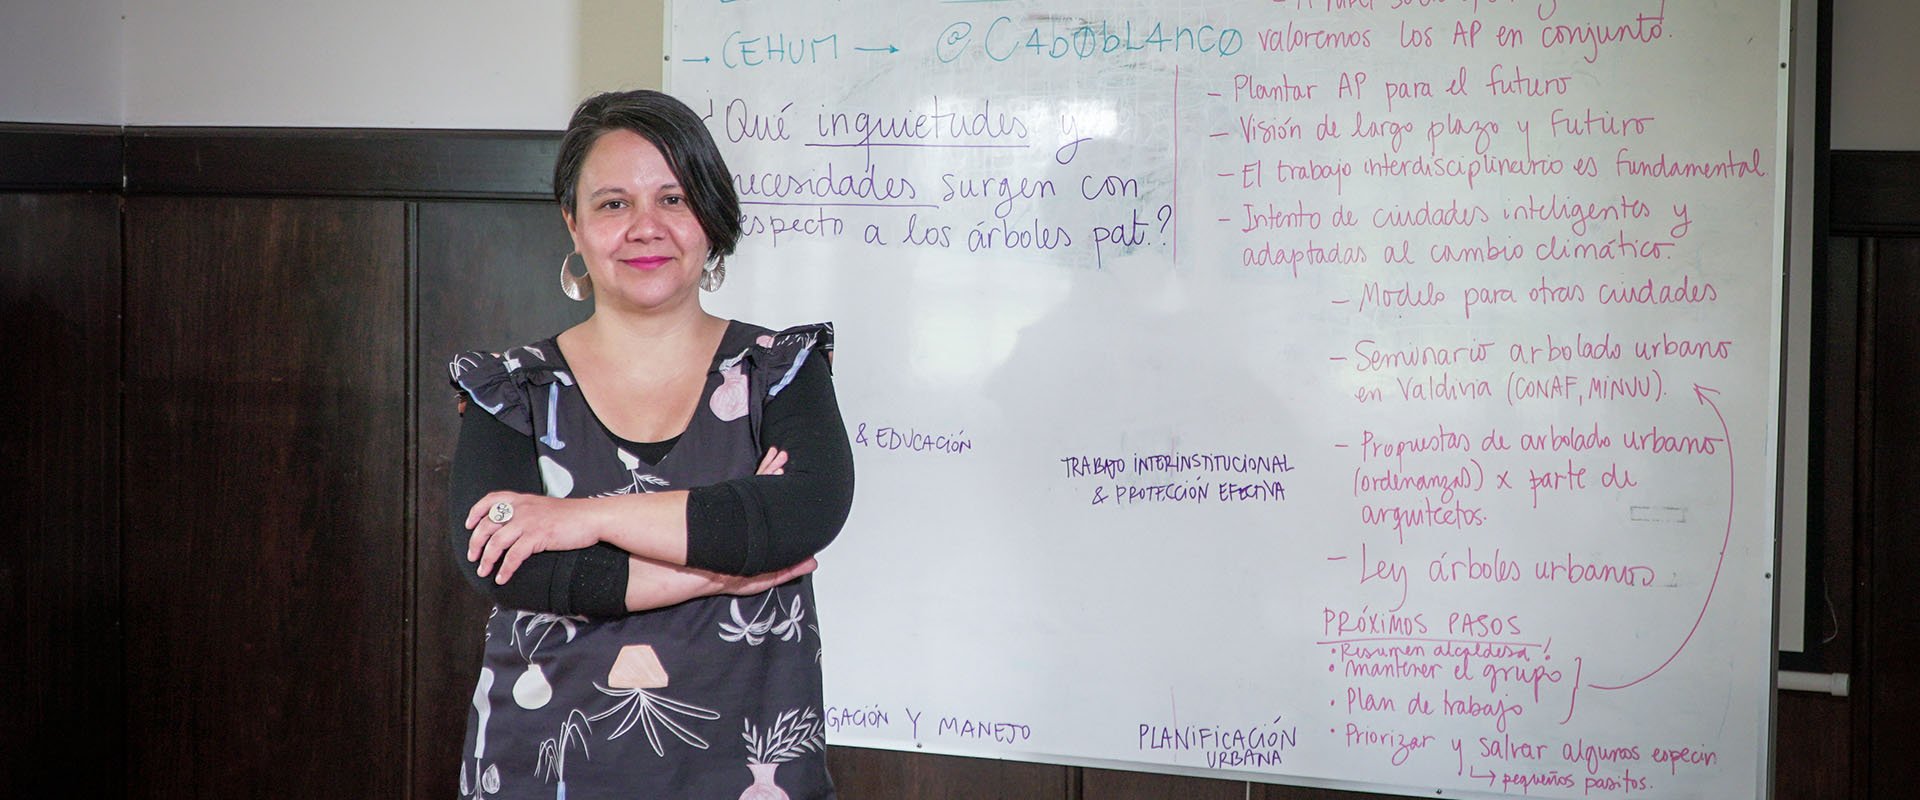 → CEHUM → @C4b0bL4nc0
¿Qué inquietudes y
necesidades surgen con
especto a los árboles pat.?
& EDUCACIÓN
TRABAJO INTERINSTITUCIONAL
& PROTECCIÓN EFECTIVA
GACIÓN Y MANEJO
PLANIFICACIÓN
URBANA
valoremos los AP en conjunto.
- Plantar AP para el futuro
- Visión de largo plazo y futuro
- El trabajo interdisciplineario es fundamental
- Intento de ciudades inteligentes y
adaptadas al cambio climático.
- Modelo para otras ciudades
- Seminario arbolado urbano
en Valdivia (CONAF, MINVU).
- Propuestas de arbolado urbano
(ordenanzas) x parte de
arquitectos.
- Ley árboles urbanos
PRÓXIMOS PASOS
• Resumen alcaldesa!
• mantener el grupo
• Plan de trabajo
• Priorizar y salvar algunos especin
↳ pequeños pasitos.